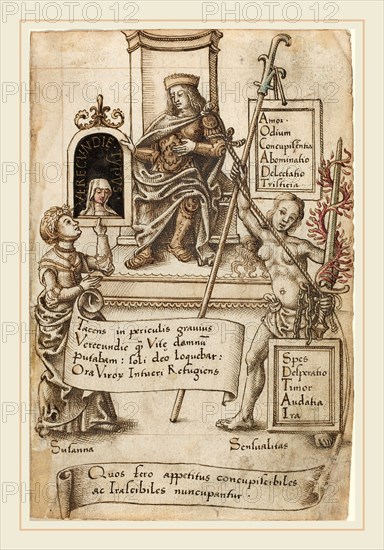 VERECUNDIE TYPUS
Amor
Odium
Concupiscentia
Abominatio
Delectatio
Tristicia
Iacens in periculis gravius
Verecundie q̃ Vite damnũ
Putabam: soli deo loquebar:
Ora Viror Intueri Refugiens
Spes
Desperatio
Timor
Audatia
Ira
Susanna
Sensualitas
Quos fero appetitus concupiscibiles
ac Irascibiles nuncupantur.